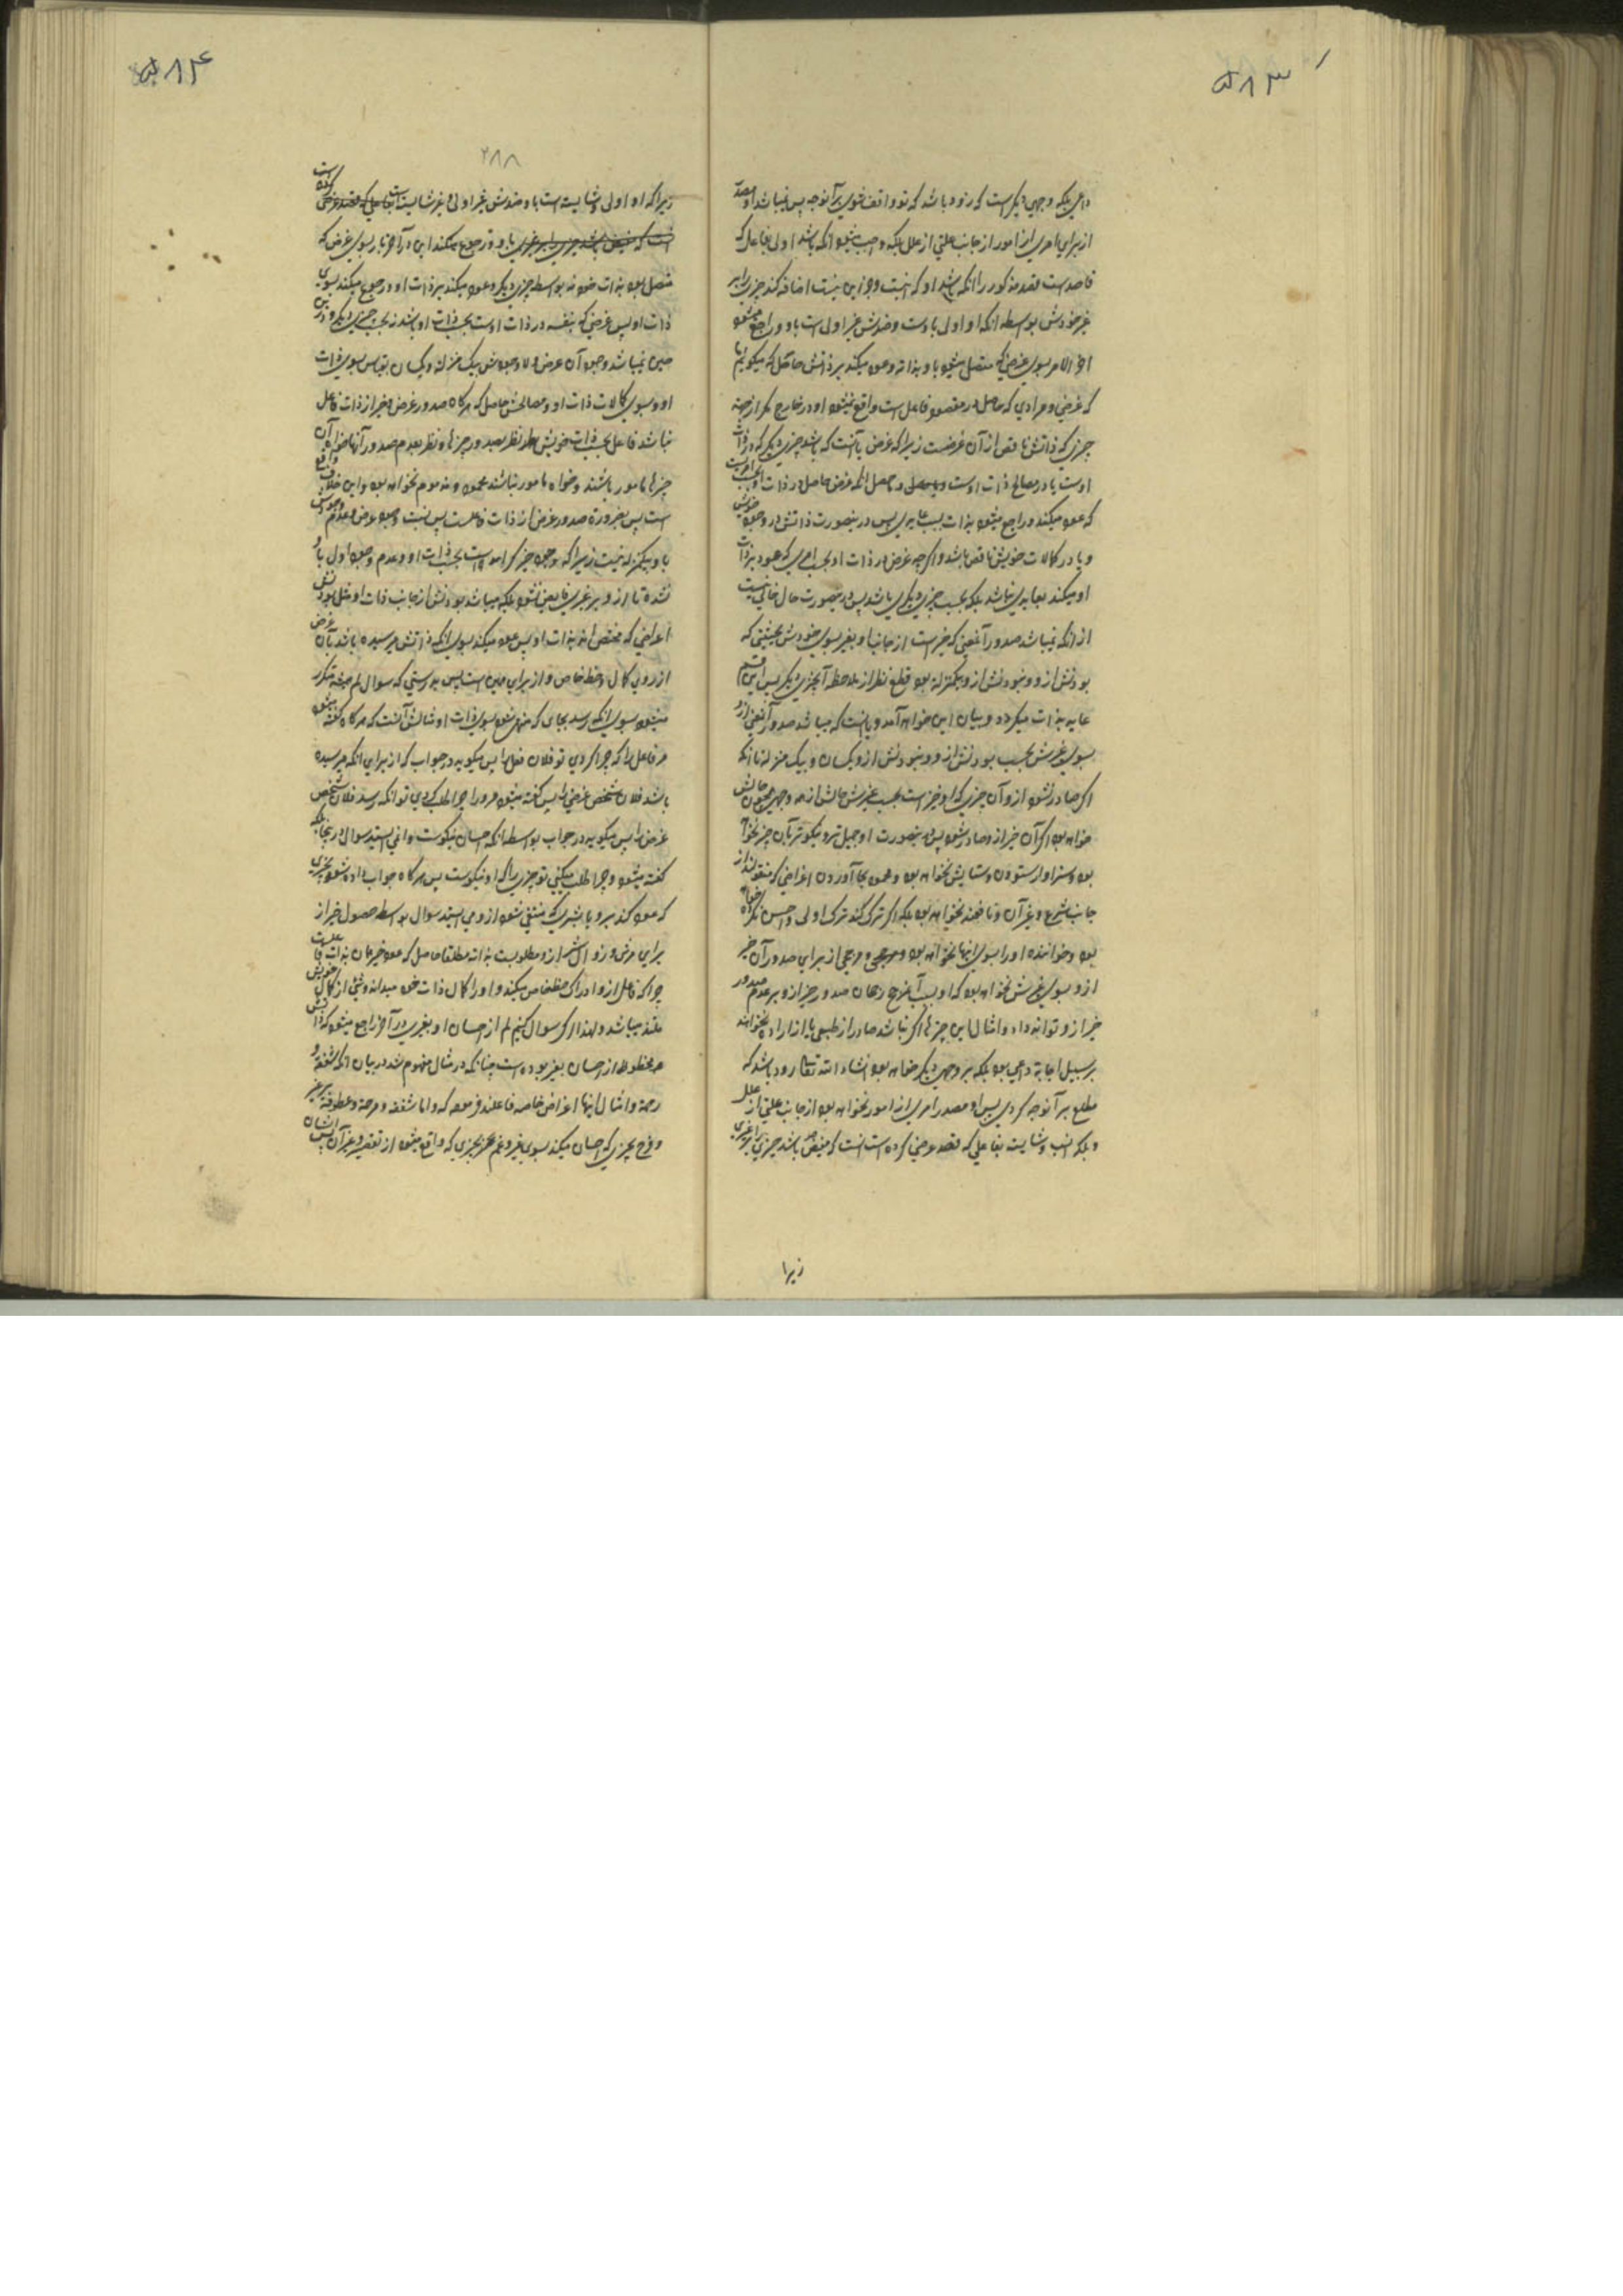 ۵۸۳
داعی بلکه وجهی دیگر است که زود باشد که تو واقف شوی بر آنوجه پس نمیباشد او مصدر
از برای امری از امور از جانب علتی از علل بلکه واجب میشود آنکه باشد اولی بفاعل که
قاصد است مقصد مذکور را آنکه باشد او که نیست جز این نیست افاضه کند چیزی را بر
غیر خودش بواسطه آنکه او اولی باوست و ضدش غیر اولی است باو و راجع میشود
آخر الامر بسوی غرضی که متصل میشود باو بذاته و عود میکند بر ذاتش حاصل که میگوئیم ما
که غرضی و مرادی که حاصل در مقصود فاعل است واقع نمیشود او در خارج مگر از جهة
چیزی که ذاتش ناقص از آن غرضست زیرا که غرض یا آنست که باشد چیزی دیگر که در ذات
اوست یا در مصالح ذات اوست
که عود میکند و راجع میشود بذات بسبب عایدی پس در نیصورت ذاتش در وجود خویش
و یا در کمالات خویش ناقص باشد و اگر چه غرض در ذات او بحسب امری که عود بذات
او میکند بعایدی نباشد بلکه بحسب چیزی دیگری باشد پس در نیصورت حال خالی نیست
از آنکه نمیباشد صدور آنمعنی که خیر است از جانب او بغیر بسوی خودش بحیثیتی که
بودنش ازو و نبودنش ازو بیکمنزله بود قطع نظر از ملاحظه آنچیزی دیگر پس این قسم
عاید بذات میگردد و بیان این خواهد آمد و یا نیست که میباشد صدور آنمعنی ازو
بسوی غیرش بحسب بودنش ازو و نبودنش ازو یکسان و بیک منزله تا آنکه
اگر صادر نشود ازو آن چیزی که او خیر است بحسب غیرش حالش از همه وجهی همچون حالش
خواهد بود اگر آن خیر ازو صادر شود پس در نیصورت او جمیل‌تر و نیکوتر بآن چیز نخواهد
بود و سزاوار ستودن و ستایش نخواهد بود و همچو بجا آوردن اغراضی که منقولند از
جانب شرع و غیر آن و نافعند نخواهد بود بلکه اگر ترک کند ترک اولی و احسن نکرده خواهد
بود و خواننده او را بسوی اینها نخواهد بود و مرجحی از برای صدور آن خیر
ازو بسوی غیرش نخواهد بود که او بسبب آنمرجح رجحان صدور خیر ازو بر عدم صدور
خیر ازو تواند داد و امثال این چیزها اگر نباشد صادر از طبعی یا از اراده نخواهند
بر سبیل اجابة داعی بود بلکه بر وجهی دیگر خواهد بود انشاء الله تعالی زود باشد که
مطلع بر آنوجه گردی پس او مصدر امری از امور نخواهد بود از جانب علتی از علل
و بلکه انسب و شایسته بفاعلی که قصد غرضی کرده است آنست که مفیض باشد چیزی را بر غیری
زیرا
۵۸۴
۲۸۸
زیرا که او اولی و شایسته است باو و ضدش غیر اولی و غیر شایسته است
باو و رجوع میکند این در آخر کار بسوی غرضی که
متصل بود بذات خود نه بواسطه چیزی دیگر و عود میکند بر ذات او و رجوع میکند بسوی
ذات او پس غرضی که بنفسه در ذات اوست بحسب ذات او باشد نه بحسب چیزی دیگر و در این
حین نمیباشد وجود آن غرض و لا وجودش بیک منزله و یکسان بقیاس بسوی ذات
او و بسوی کمالات ذات او و مصالحش حاصل که هرگاه صدور غرض و خیر از ذات فاعل
نباشد فاعل بحسب ذات خویش نظر بصدور چیزها و نظر بعدم صدور آنها خواه آن
چیزها مامور باشند و خواه نامور نباشند محمود و مذموم نخواهد بود و این خلاف واقع
است پس بضرورة صدور غرض از ذات فاعلست پس نسبت وجود غرض و عدم وجودش
باو بیکمنزله نیست زیرا که وجود چیزی که او راست بحسب ذات او و عدم وجود اول باو
نشده تا ازو بر غیری فایض نشود بلکه میباشد بودنش از جانب ذات او مثل بودنش
اغراضی که مختص اند بذات او پس عود میکند بسوی آنکه ذاتش پرسیده باشد بآن غرض
از روی کمال و حظ خاص و از برای همین است پس بدرستی که سوال لم همیشه متکرر
میشود بسوی آنکه رسد بجایی که منتهی شود بسوی ذات او مثالش آنست که هرگاه گفته میشود
مر فاعل را که چرا کردی تو فلان فعل را پس میگوید در جواب که از برای آنکه پرسیده
باشد فلان شخص غرضی را پس گفته میشود مر او را چرا طلب کردی تو آنکه رسد فلان شخص
غرض را پس میگوید در جواب بواسطه آنکه احسان نیکوست و نمی ایستد سوال در اینجا بلکه
گفته میشود و چرا طلب میکنی تو چیزی را که او نیکوست پس هرگاه جواب داده شود بخیری
که عود کند برو یا بشری که منتفی شود ازو می ایستد سوال بواسطه حصول خیر از
برای هر شی و زوال شر ازو مطلوبست بذاته مطلقا حاصل که عود خیر همان بذات فاعلست
چرا که فاعل ازو ادراک حظ خاص میکند و او را کمال ذات خود میداند و شی از کمال خویش
ملتذ میباشد و لهذا اگر سوال کنیم لم از احسان او بغیری در آخر راجع میشود که ذاتش
محظوظ از احسان بغیر بوده است چنانکه در مثال مفهوم شد در بیان آنکه شفقة و
رحمة و امثال اینها اغراض خاصه فاعلند فرموده که و اما شفقة و رحمة و عطوفة بر غیر
و فرح بچیزی که احسان میکند بسوی غیر و غم بچیزی که واقع میشود از تقصیر و غیر آن پس ایشان